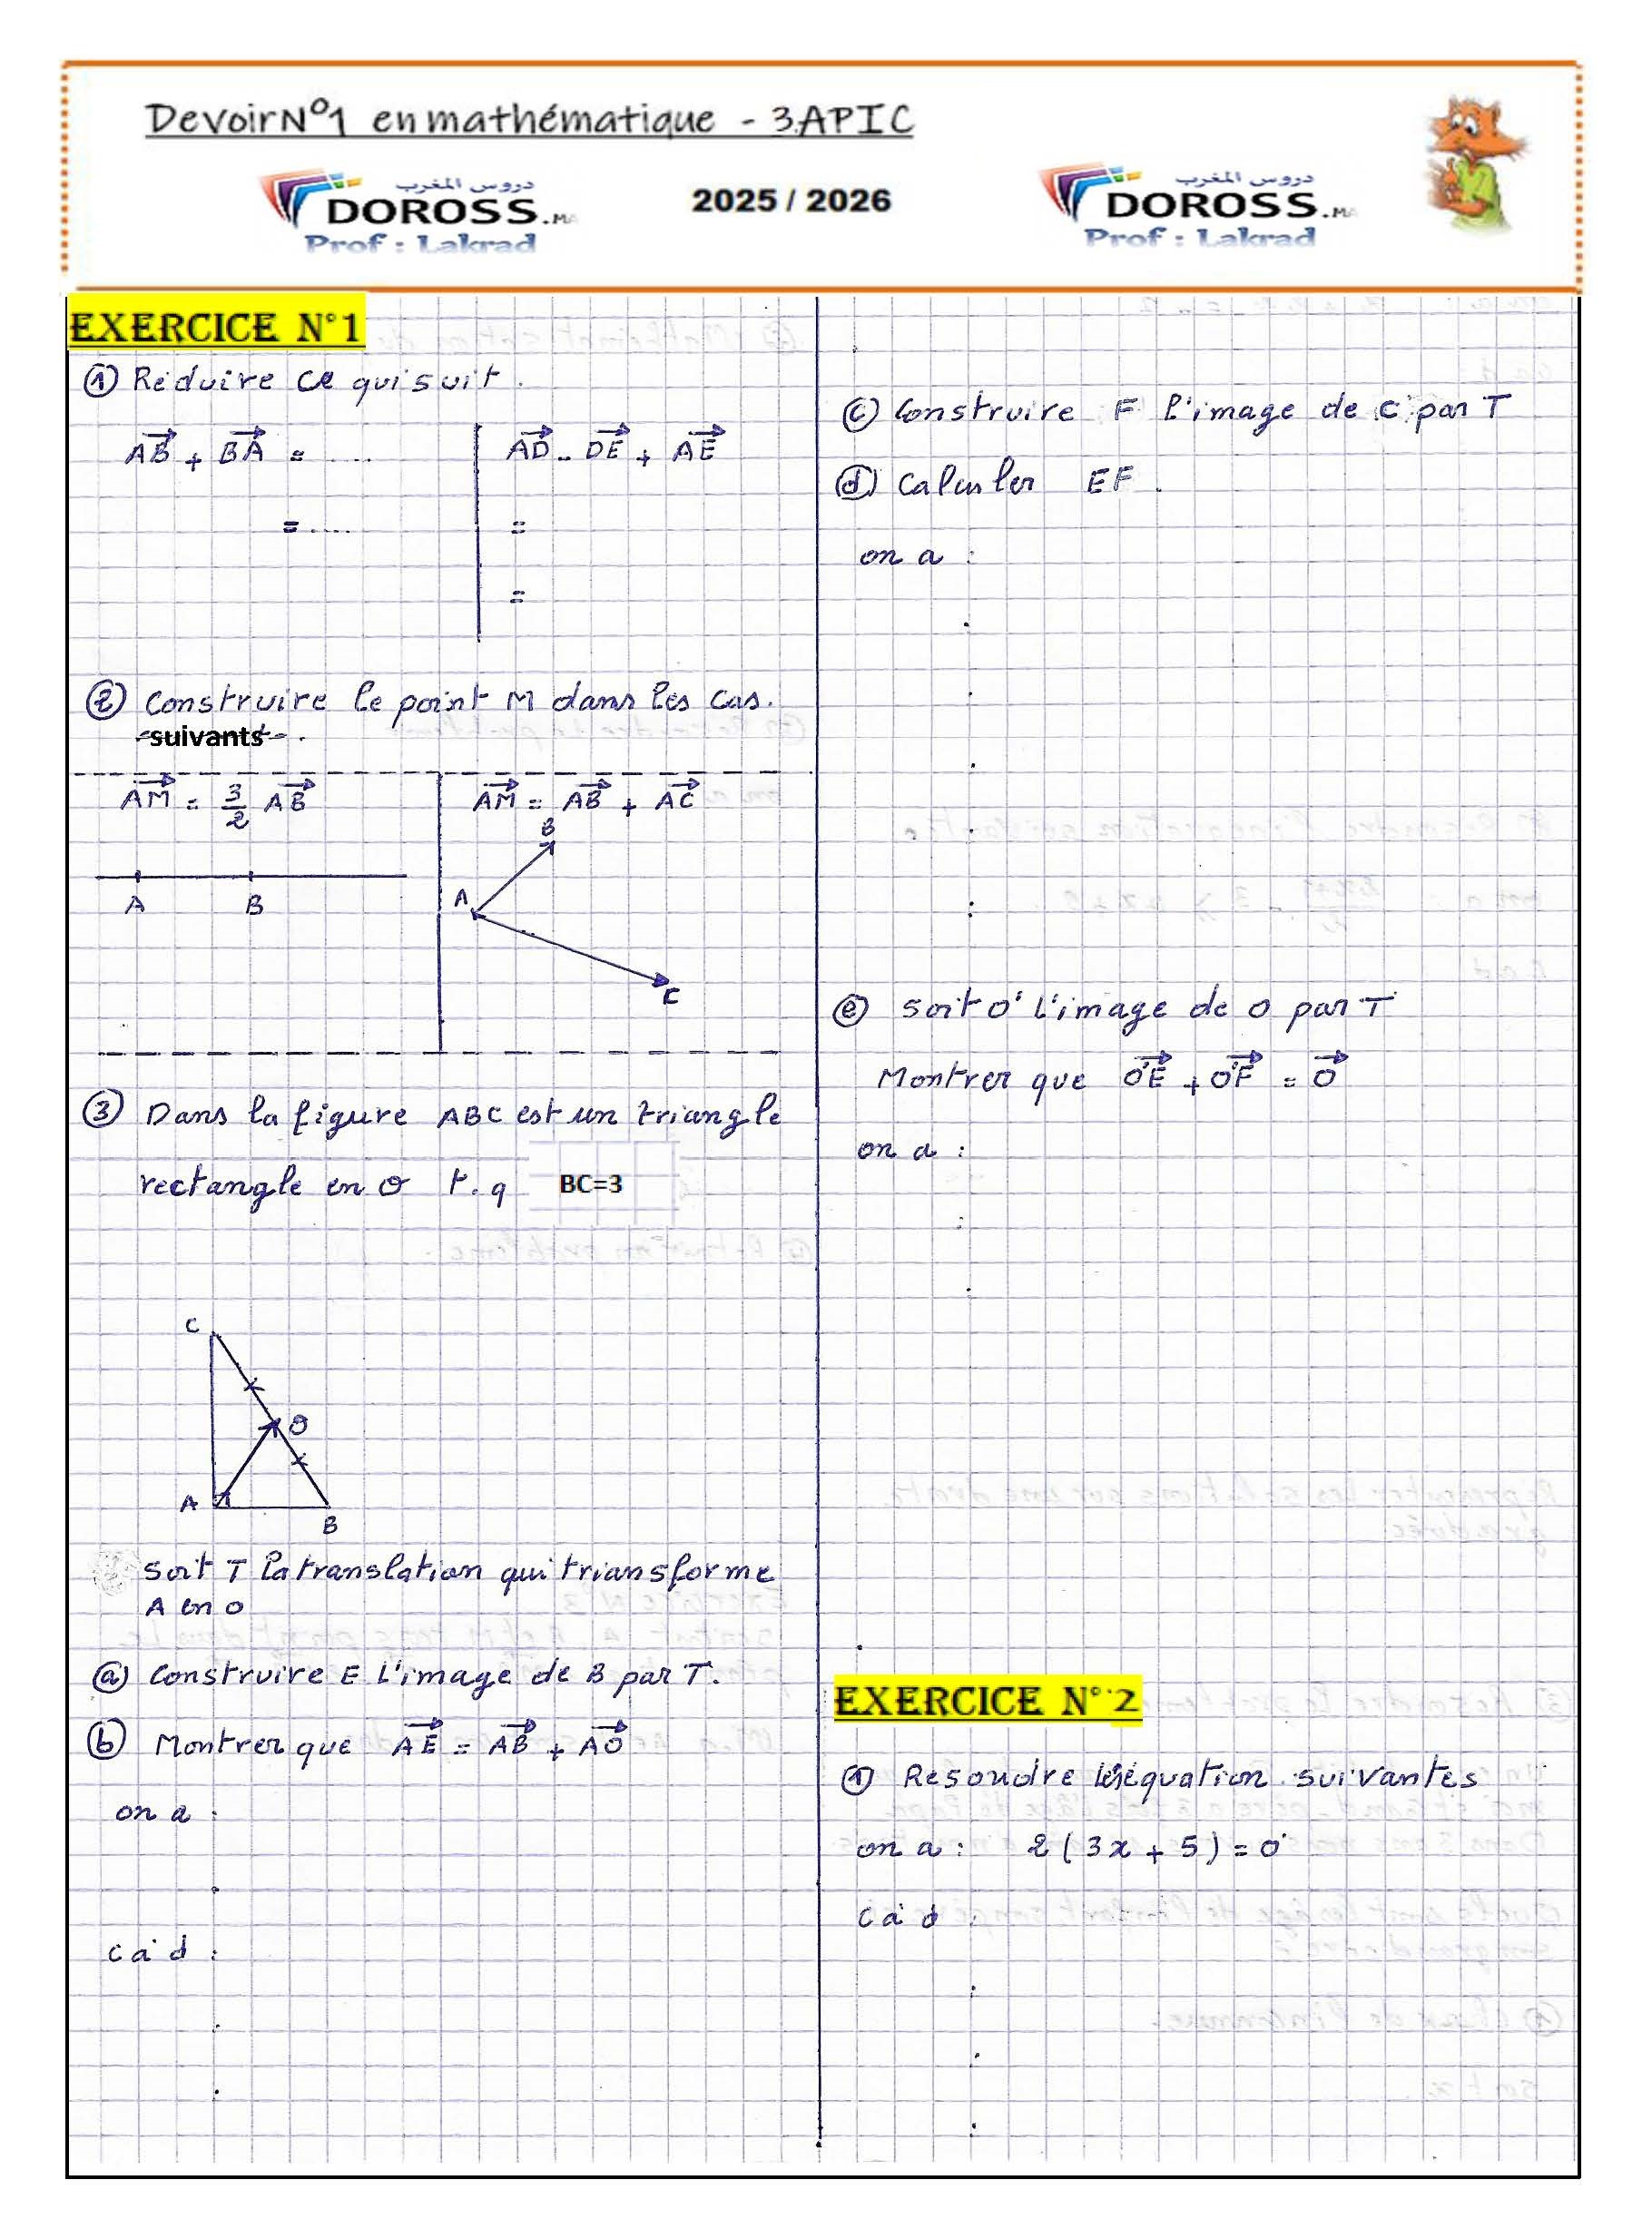 DevoirN°1 en mathématique - 3.APIC
دروس المغرب
DOROSS.MA
Prof : Lakrad
2025 / 2026
دروس المغرب
DOROSS.MA
Prof : Lakrad
EXERCICE N°1
① Réduire ce qui suit.
AB + BA = ....
= ....
AD - DE + AE
=
=
② Construire le point M dans les cas.
suivants
AM = 3/2 AB
A B
AM = AB + AC
B
A
C
③ Dans la figure ABC est un triangle
rectangle en O t.q BC=3
C
O
A
B
Soit T la translation qui triansforme
A en O
ⓐ Construire E L'image de B par T.
ⓑ Montrer que AE = AB + AO
on a :
càd :
ⓒ Construire F l'image de C par T
ⓓ Calculer EF.
on a :
ⓔ Soit O' L'image de O par T
Montrer que O'E + O'F = O
on a :
EXERCICE N°2
① Resoudre les équation suivantes
on a : 2(3x + 5) = 0
càd :